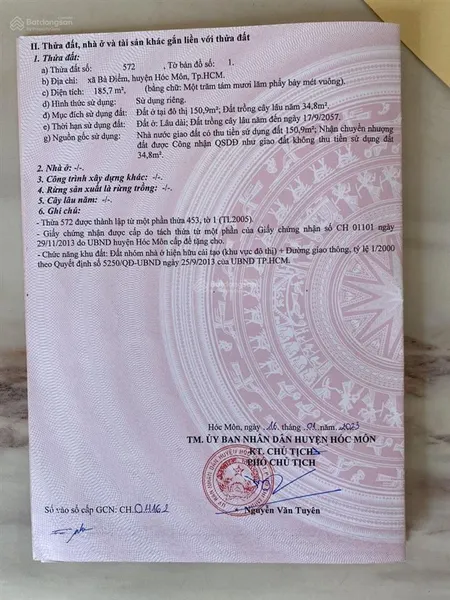 Batdongsan
II. Thửa đất, nhà ở và tài sản khác gắn liền với thửa đất
1. Thửa đất:
a) Thửa đất số: 572 , Tờ bản đồ số: 1.
b) Địa chỉ: xã Bà Điểm, huyện Hóc Môn, Tp.HCM.
c) Diện tích: 185,7 m², (bằng chữ: Một trăm tám mươi lăm phẩy bảy mét vuông).
d) Hình thức sử dụng: Sử dụng riêng.
đ) Mục đích sử dụng đất: Đất ở tại đô thị 150,9m²; Đất trồng cây lâu năm 34,8m².
e) Thời hạn sử dụng đất: Đất ở: Lâu dài; Đất trồng cây lâu năm đến ngày 17/9/2057.
g) Nguồn gốc sử dụng: Nhà nước giao đất có thu tiền sử dụng đất 150,9m²; Nhận chuyển nhượng
đất được Công nhận QSDĐ như giao đất không thu tiền sử dụng đất
34,8m².
2. Nhà ở: -/-.
3. Công trình xây dựng khác: -/-.
4. Rừng sản xuất là rừng trồng: -/-.
5. Cây lâu năm: -/-.
6. Ghi chú:
- Thửa 572 được thành lập từ một phần thửa 453, tờ 1 (TL2005).
- Giấy chứng nhận được cấp do tách thửa từ một phần của Giấy chứng nhận số CH 01101 ngày
29/11/2013 do UBND huyện Hóc Môn cấp để tặng cho.
- Chức năng khu đất: Đất nhóm nhà ở hiện hữu cải tạo (khu vực đô thị) + Đường giao thông, tỷ lệ 1/2000
theo Quyết định số 5250/QĐ-UBND ngày 25/9/2013 của UBND TP.HCM.
Hóc Môn, ngày 16 tháng 01 năm 2023
TM. ỦY BAN NHÂN DÂN HUYỆN HÓC MÔN
KT. CHỦ TỊCH
PHÓ CHỦ TỊCH
Nguyễn Văn Tuyên
Số vào sổ cấp GCN: CH